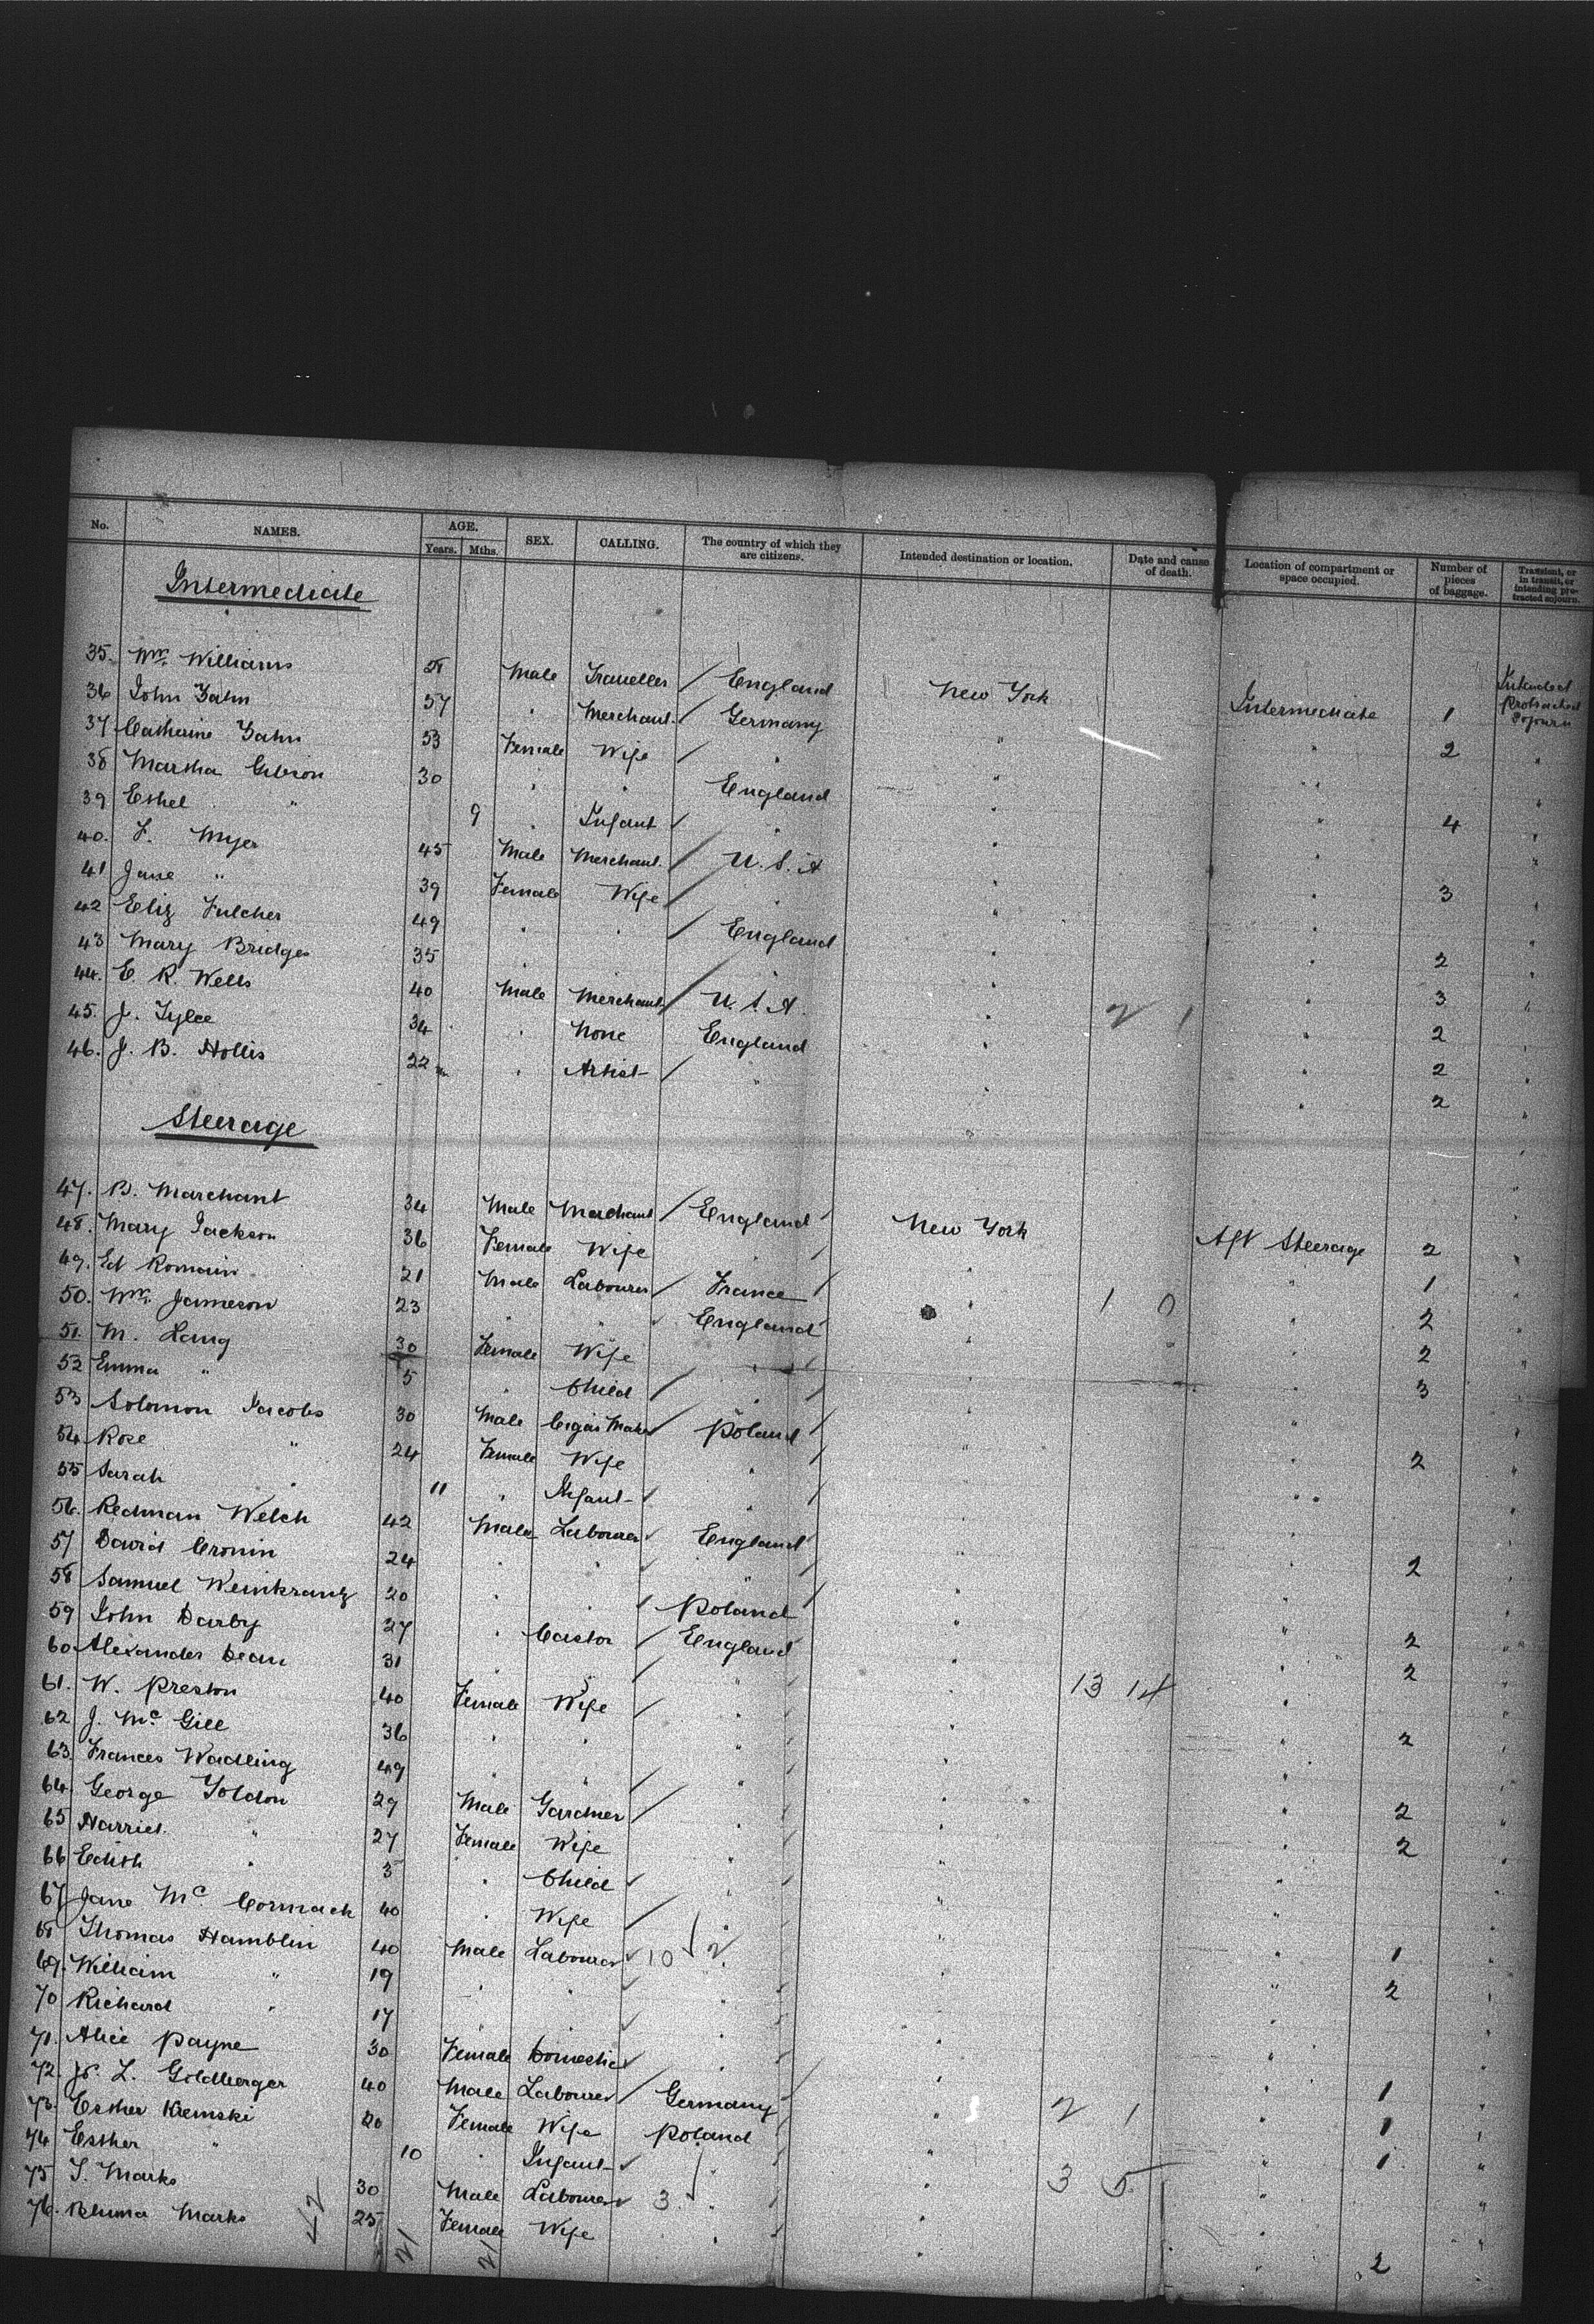 No. NAMES. AGE. Years. Mths. SEX. CALLING. The country of which they are citizens. Intended destination or location. Date and cause of death. Location of compartment or space occupied. Number of pieces of baggage. Transient, or in transit, or intending protracted sojourn.
Intermediate
35. Wm. Williams 21 Male Traveller England New York Intermediate 1 Intended Protracted Sojourn
36 John Zahn 57 " Merchant Germany " " 2 "
37 Catherine Zahn 53 Female Wife " " " "
38 Martha Gibson 30 " " England " " 4 "
39 Ethel " 9 " Infant " " " "
40. F. Myer 45 Male Merchant U.S.A " " 3 "
41 Jane " 39 Female Wife " " " "
42 Eliz Fulcher 49 " " England " " 2 "
43 Mary Bridges 35 " " " " " 3 "
44. E. R. Wells 40 Male Merchant U.S.A. " 2 1 " 2 "
45. J. Tylee 34 " None England " " 2 "
46. J. B. Hollis 22 " Artist " " " 2 "
Steerage
47. B. Marchant 34 Male Merchant England New York Aft Steerage 2 "
48. Mary Jackson 36 Female Wife " " " 1 "
49. Ed Romain 21 Male Labourer France " 1 0 " 2 "
50. Wm. Jameson 23 " " England " " 2 "
51. M. Lang 30 Female Wife " " " 3 "
52 Emma " 5 " Child " " " "
53 Solomon Jacobs 30 Male Cigar Maker Poland " " 2 "
54 Rose " 24 Female Wife " " " "
55 Sarah " 11 " Infant " " " "
56. Redman Welch 42 Male Labourer England " " 2 "
57 David Cronin 24 " " " " " "
58 Samuel Weinkrantz 20 " " Poland " " 2 "
59 John Darby 27 " Castor England " " 2 "
60 Alexander Dean 31 " " " " 13 14 " "
61. W. Preston 40 Female Wife " " " 2 "
62 J. Mc Gill 36 " " " " " "
63. Frances Wadling 49 " " " " " 2 "
64. George Goldon 29 Male Gardner " " " 2 "
65 Harriet " 27 Female Wife " " " "
66 Edith " 3 " Child " " " "
67 Jane Mc. Cormack 40 " Wife " " " 1 "
68 Thomas Hamblin 40 Male Labourer 10 2 " " 2 "
69. William " 19 " " " " " "
70 Richard " 17 " " " " " "
71. Alice Payne 30 Female Domestic " " " 1 "
72. L. Goldberger 40 Male Labourer Germany " 2 1 " 1 "
73. Esther Kremski 20 Female Wife Poland " " 1 "
74 Esther " 10 " Infant " " 3 5 " "
75 S. Marks 30 Male Labourer 3 " " " "
76. Marks 25 Female Wife " " " 2
42 21 21